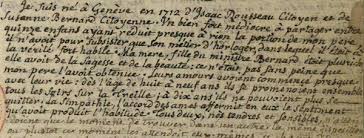 Je suis né à Genève en 1712 d'Isaac Rousseau Citoyen et de
Susanne Bernard Citoyenne. Un bien fort médiocre à partager entre
quinze enfans ayant réduit presque à rien la portion de mon père
il n'avoit pour subsister que son métier d'horloger, dans lequel il étoit
la vérité fort habile. Ma mère, fille du ministre Bernard étoit plus riche
elle avoit de la sagesse et de la beauté: ce n'étoit pas sans peine que
mon père l'avoit obtenue. Leurs amours avoient commencé presque
avec leur vie: dès l'âge de huit à neuf ans ils se promenoient ensemble
tous les soirs sur la Treille; à dix ans ils ne pouvoient plus se
quitter. La simpathie, l'accord des ames affermit en eux le sentiment
qu'avoit produit l'habitude. Tous deux, nés tendres et sensibles,
que le moment de trouver dans un autre la même disposition
ou plustot ce moment les attendoit eux